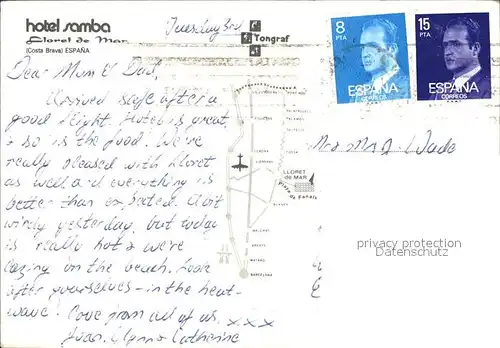 hotel samba
Lloret de Mar
(Costa Brava) ESPAÑA
Tuesday 3rd
Tongraf
8
PTA
ESPAÑA
CORREOS
15
PTA
ESPAÑA
CORREOS
Dear Mum & Dad,
Arrived safe after a
good flight. Hotel is great,
& so is the food. We're
really pleased with Lloret
as well and everything is
better than expected. A bit
windy yesterday, but today
is really hot & we're
lazing on the beach. Look
after yourselves - in the heat-
wave! Love from all of us. x x x
Juan, Glynn & Catherine
LLORET
de MAR
BARCELONA
Mr & Mrs A. Wade
privacy protection
Datenschutz